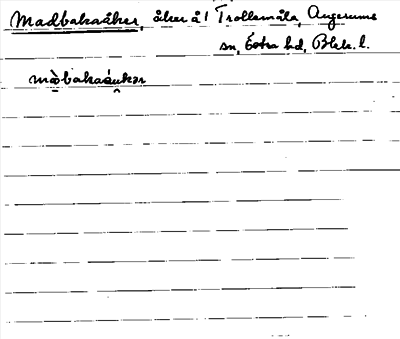 Madbakaåker, åker å1 Trollemåla, Augerums
sn, Östra hd, Blek. l.
màbakaáukər